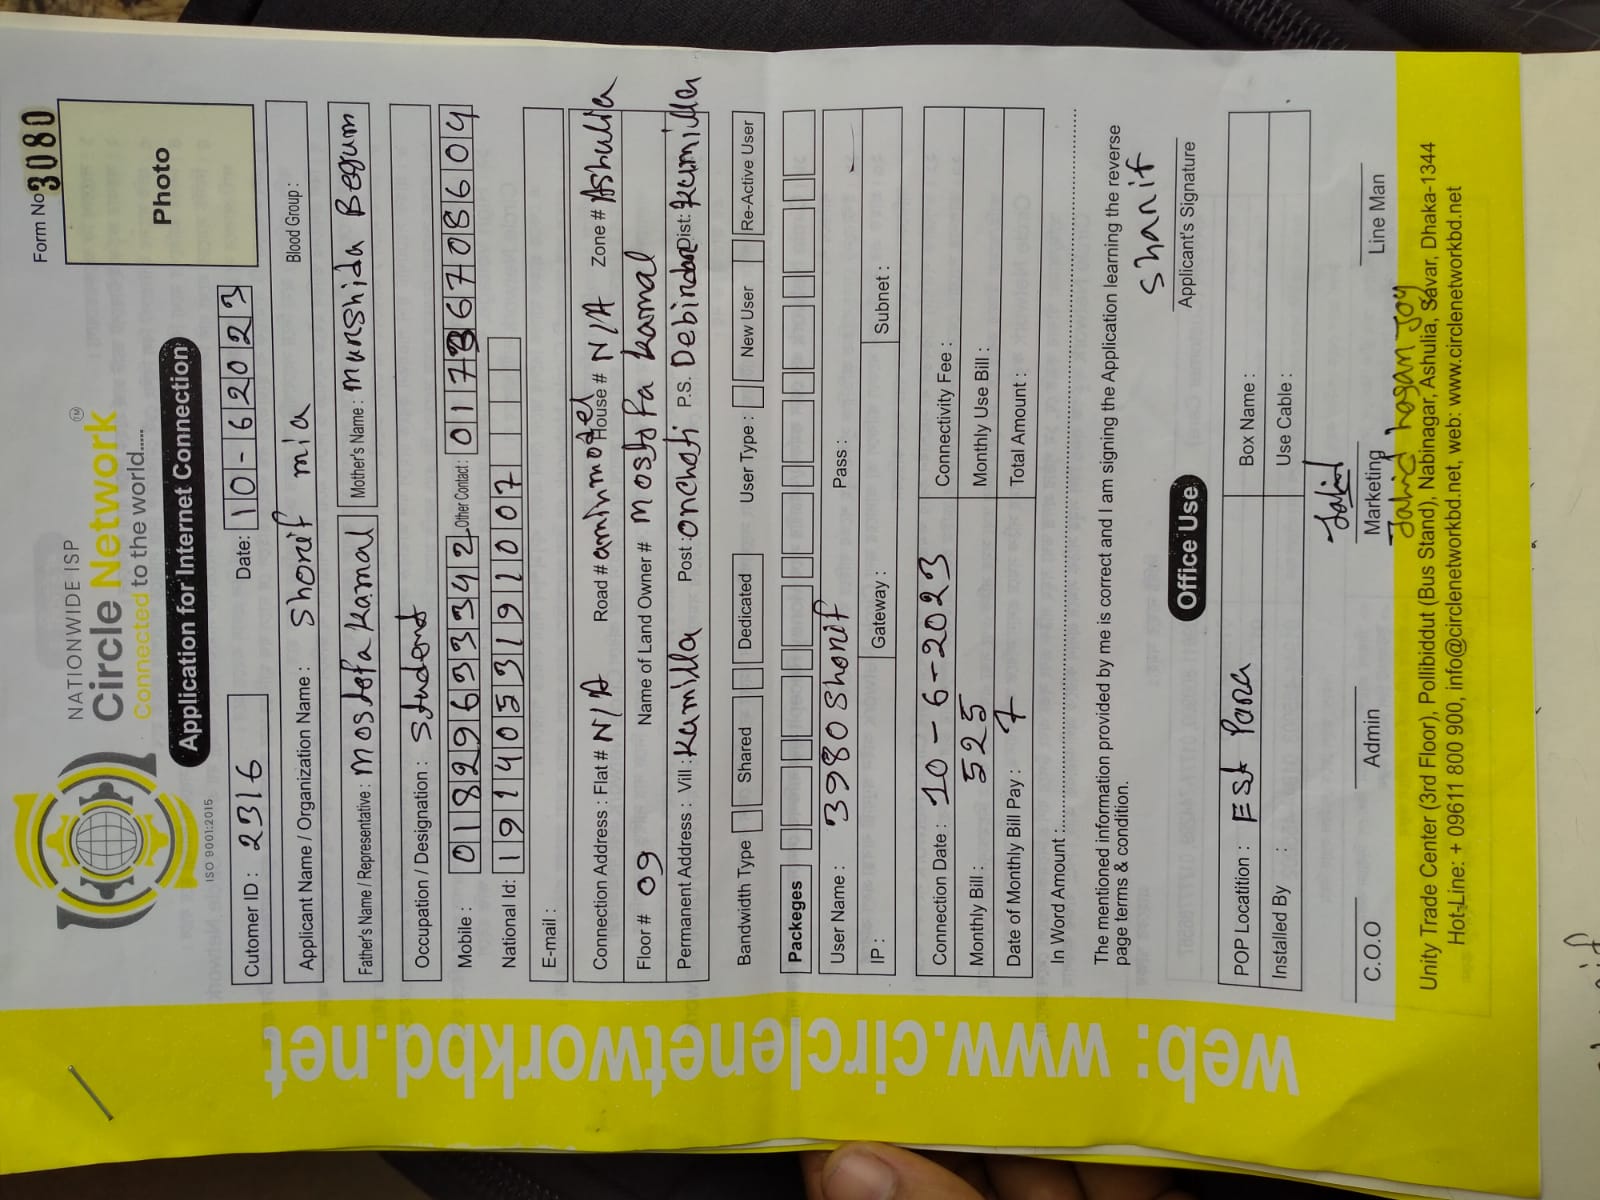 Form No 3080
NATIONWIDE ISP
Circle Network TM
Connected to the world.....
ISO 9001:2015
Application for Internet Connection
Photo
Cutomer ID : 2316 Date: 10-62023
Applicant Name / Organization Name : Shorif mia Blood Group :
Father's Name / Representative : mostofa kamal Mother's Name : Murshida Begum
Occupation / Designation : Student
Mobile : 01829633342 Other Contact : 01736708604
National Id: 1914053191007
E-mail :
Connection Address : Flat # N/A Road # aminmodel House # N/A Zone # Ashulia
Floor # 09 Name of Land Owner # mostofa kamal
Permanent Address : Vill : kumilla Post : onchoti P.S. Debirdar Dist: kumilla
Bandwidth Type Shared Dedicated User Type : New User Re-Active User
Packeges
User Name : 3980Shorif Pass :
IP : Gateway : Subnet :
Connection Date : 10-6-2023 Connectivity Fee :
Monthly Bill : 525 Monthly Use Bill :
Date of Monthly Bill Pay : 7 Total Amount :
In Word Amount :
The mentioned information provided by me is correct and I am signing the Application learning the reverse
page terms & condition.
Sharif
Applicant's Signature
Office Use
POP Locatition : ESt Para Box Name :
Installed By : Use Cable :
Jahid
C.O.O Admin Marketing Line Man
Jahid hasan Joy
Unity Trade Center (3rd Floor), Pollibiddut (Bus Stand), Nabinagar, Ashulia, Savar, Dhaka-1344
Hot-Line: + 09611 800 900, info@circlenetworkbd.net, web: www.circlenetworkbd.net
web: www.circlenetworkbd.net